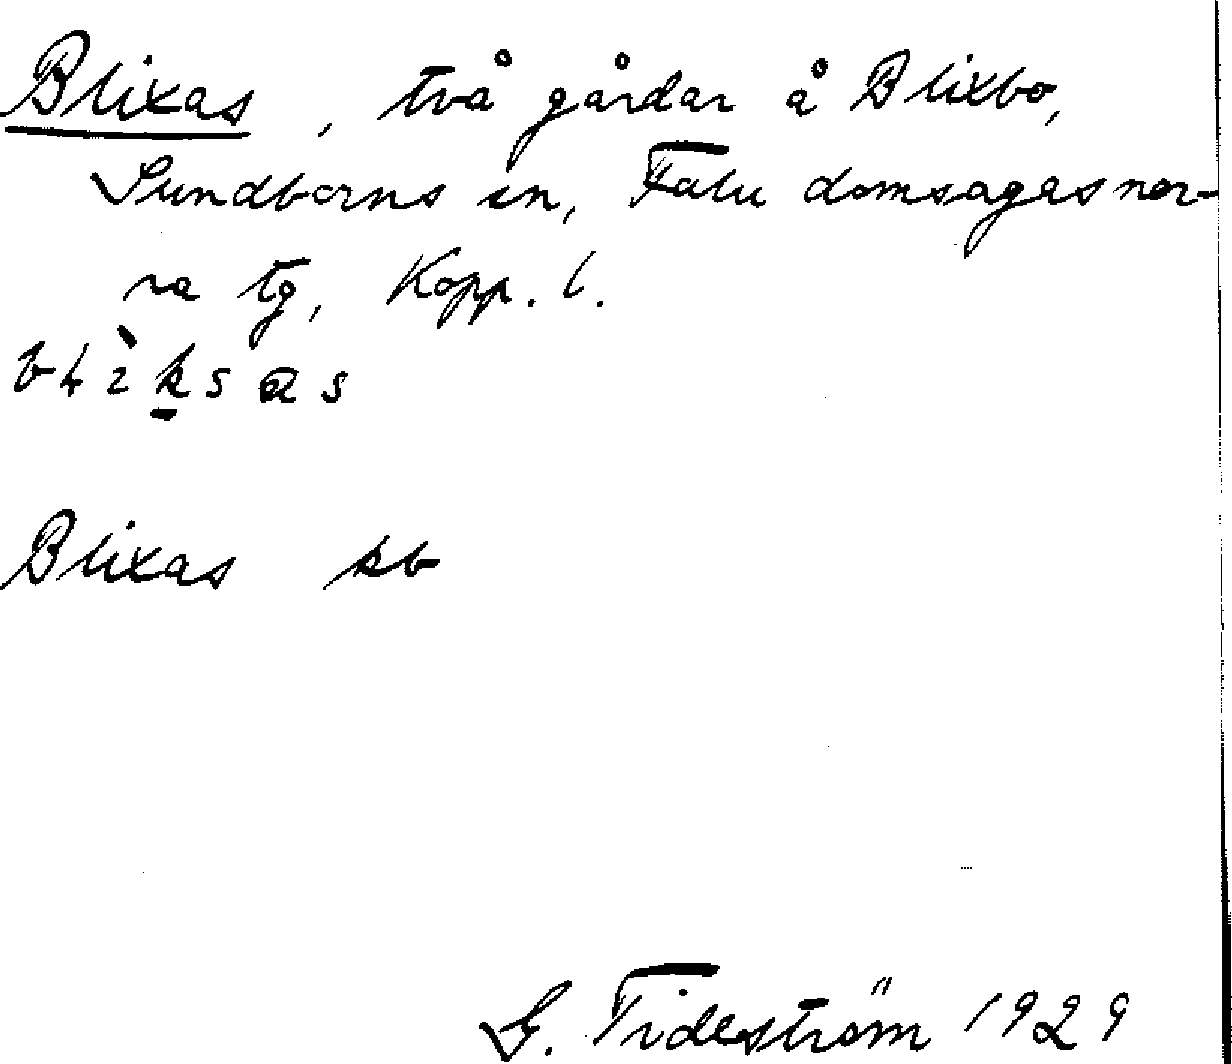 Blixas, två gårdar å Blixbo,
Sundborns sn, Falu domsagas nor-
ra tg, Kopp. l.
Blixas kb
G. Tideström 1929